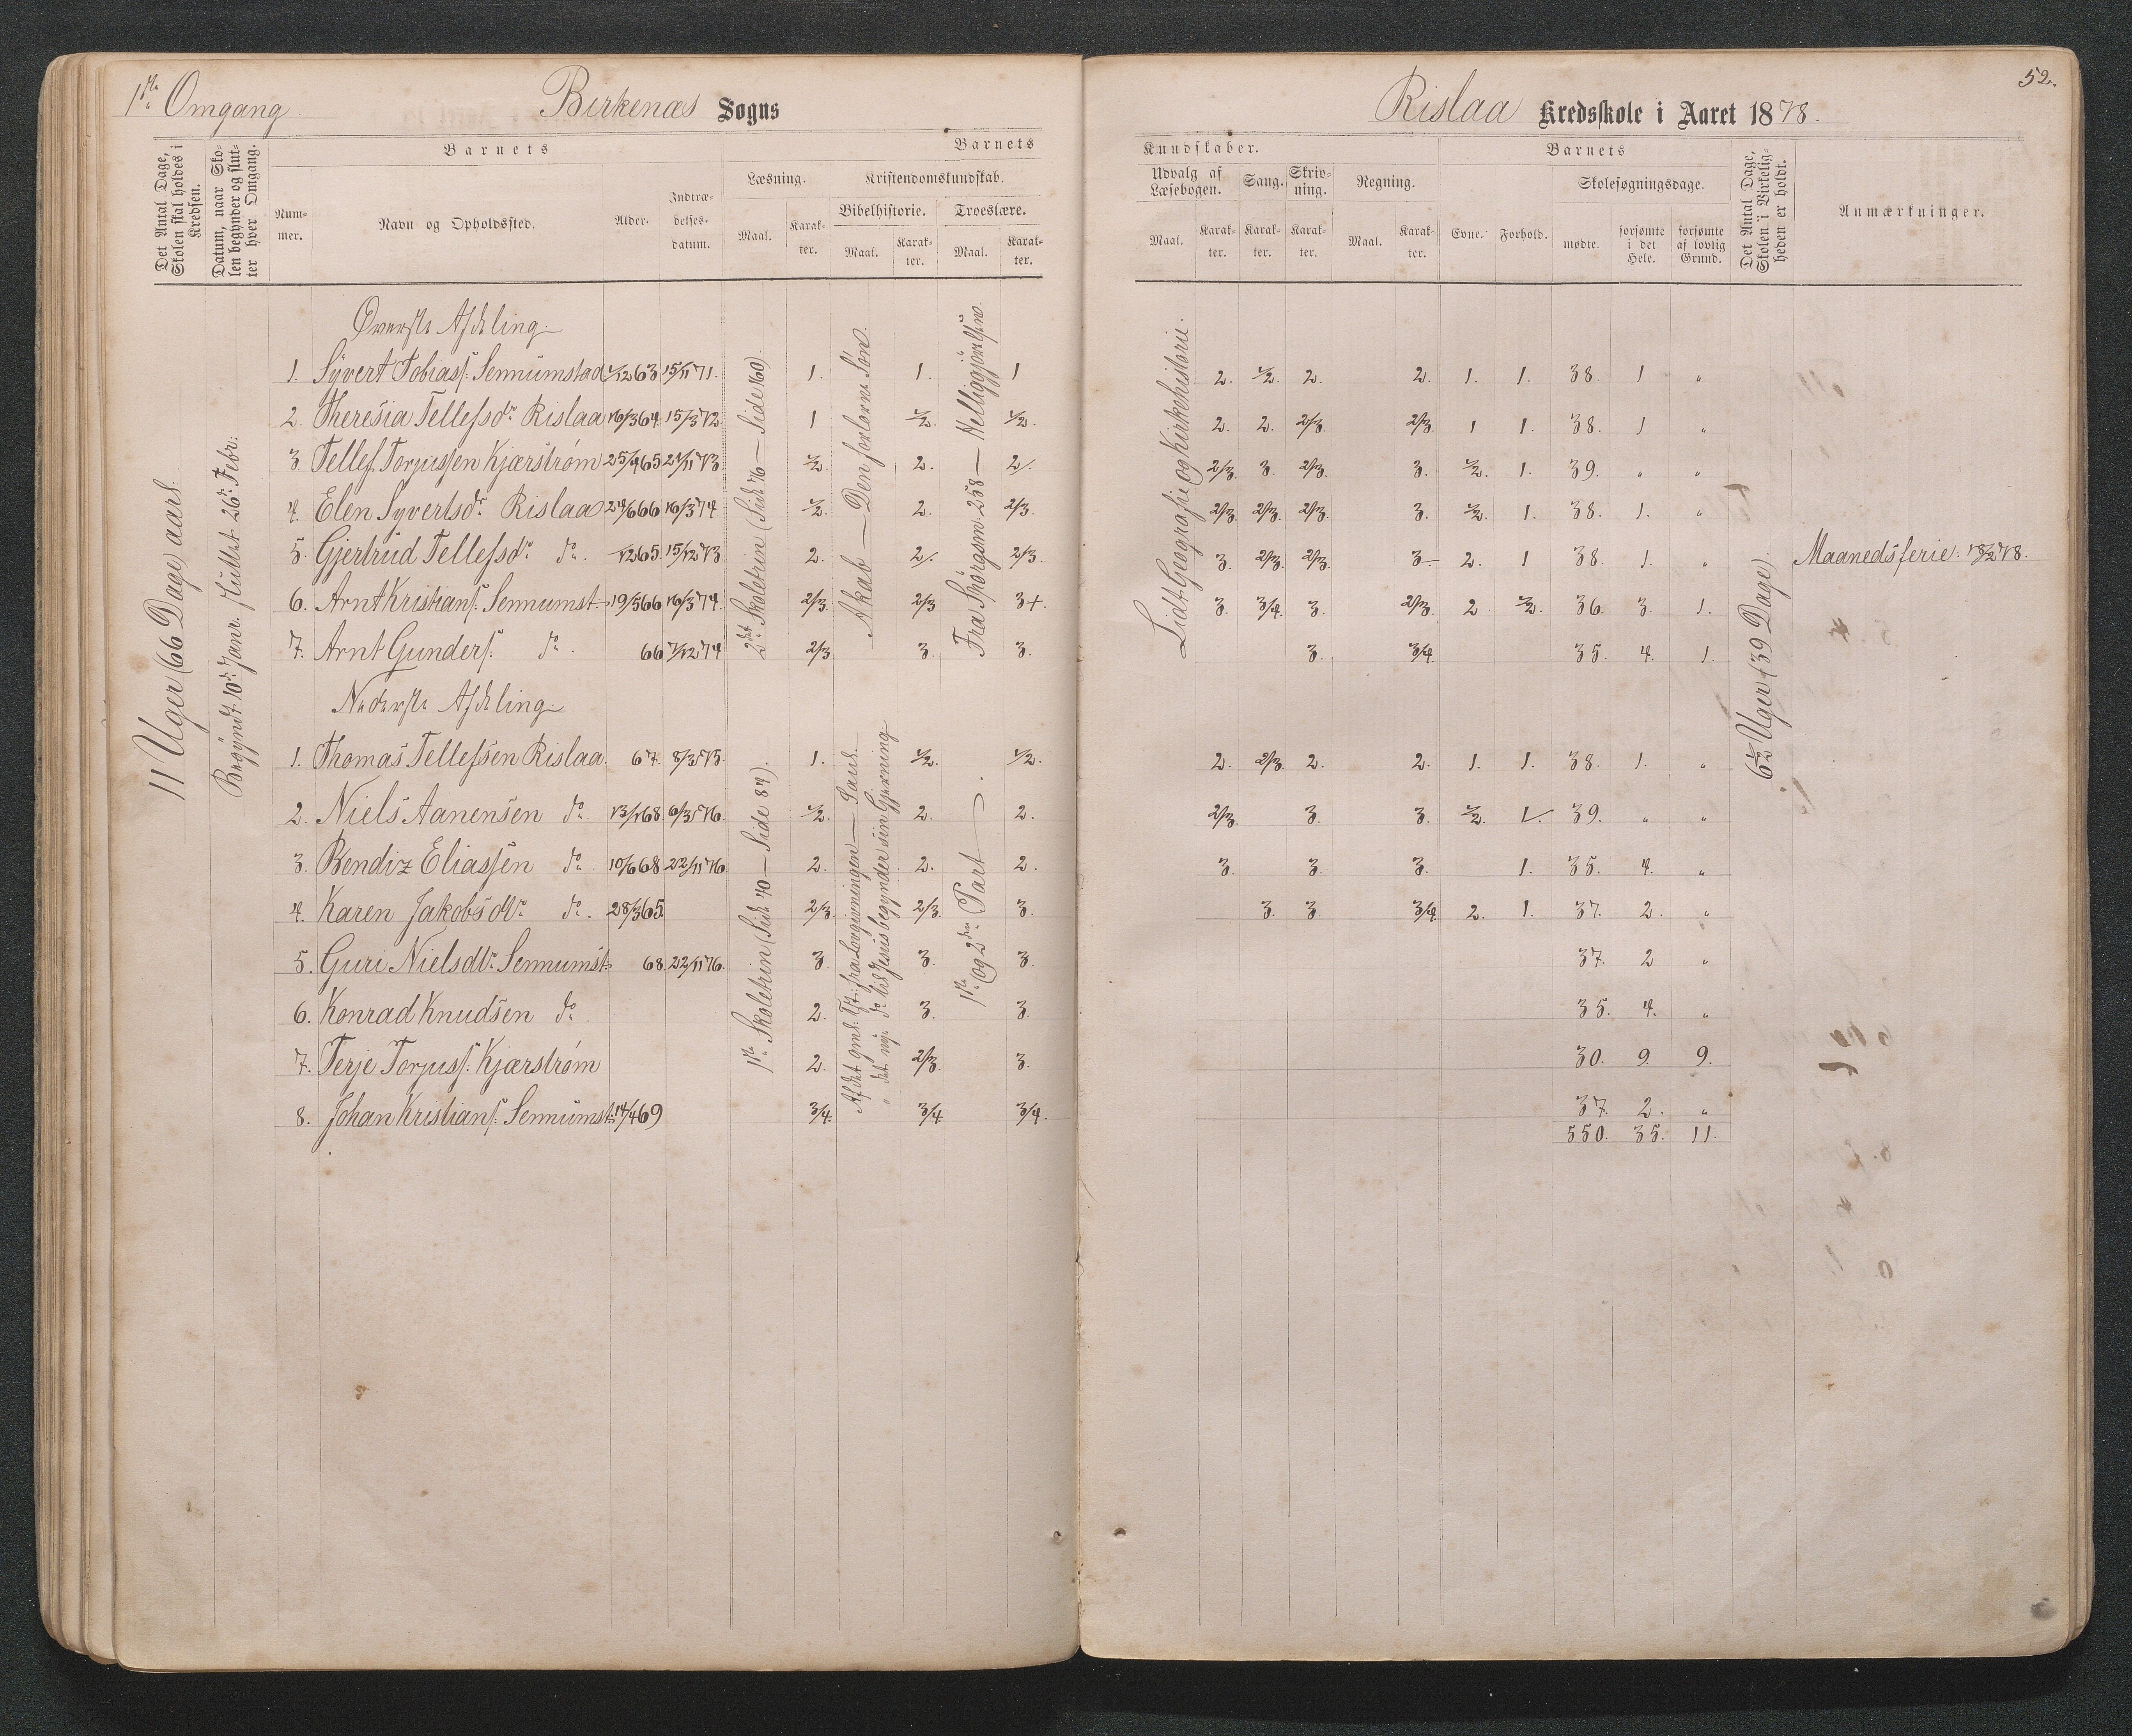 1ste Omgang.
Birkenæs Sogns
Rislaa Kredsskole i Aaret 1878.
52.
Det Antal Dage, Skolen skal holdes i Kredsen.
Datum, naar Skolen begynder og slutter hver Omgang.
Barnets
Barnets
Kundskaber.
Barnets
Nummer.
Navn og Opholdssted.
Alder.
Indtrædelsesdatum.
Læsning.
Kristendomskundskab.
Bibelhistorie.
Troeslære.
Maal.
Karakter.
Maal.
Karakter.
Maal.
Karakter.
Udvalg af Læsebogen.
Sang.
Skrivning.
Regning.
Maal.
Karakter.
Karakter.
Karakter.
Maal.
Karakter.
Evne.
Forhold.
Skolesøgningsdage.
mødte.
forsømte i det Hele.
forsømte af lovlig Grund.
Det Antal Dage, Skolen i Virkeligheden er holdt.
Anmærkninger.
11 Uger (66 Dage) aarl.
Begyndt 10de Janr. sluttet 26de Febr:
2det Skoletrin (Side 76 — Side 160).
Akab — Den forlorne Søn.
Fra Spörgsm. 258 — Helliggjörelsen.
Lidt Geografie og Kirkehistorie.
6½ Uger (39 Dage).
Øverste Afdeling.
1. Syvert Tobiass. Sennumstad 1/12 63 15/11 71. 1. 1. 1 2. 1/2. 2. 2. 1. 1. 38. 1 "
2. Theresia Tellefsdr Rislaa 16/3 64. 15/3 72. 1 1/2. 1/2. 2. 2. 2/3. 2/3. 1 1. 38. 1 "
3. Tellef Torjussen Kjærstrøm 25/9 65 21/11 73. 1/2. 2. 2/. 2/3. 3. 2/3. 3. 1/2. 1. 39. " "
4. Elen Syvertsdr. Rislaa 24/6 66 16/3 74. 1/2. 2. 2/3. 2/3. 2/3. 2/3. 3. 1/2. 1. 38. 1. "
5. Gjertrud Tellefsdr do. /12 65. 15/12 73. 2. 2/. 2/3. 3. 2/3. 2/3. 3- 2. 1 38. 1. " Maanedsferie. 18/2 78.
6. Arnt Kristians. Sennumst. 19/5 66 16/3 74. 2/3. 2/3 3+. 3. 3/4. 3. 2/3. 2 1/2. 36. 3. 1.
7. Arnt Gunders. do. 66 7/12 74 2/3 3. 3. 3. 3/4. 35. 4. 1.
Nederste Afdeling.
1ste Skoletrin (Side 40 — Side 84).
Af det gml. Tst: fra Lovgivningen — Saul.
" det nye do. til Jesus begynder sin Gjerning
1ste og 2den Part
1. Thomas Tellefsen Rislaa. 67. 8/3 75. 1. 1/2. 1/2. 2. 2/3. 2. 2. 1. 1. 38. 1. "
2. Niels Aanensen do. 13/1 68. 6/3 76. 1/2. 2. 2. 2/3. 3. 3. 1/2. 1/. 39. " "
3. Bendiz Eliassen do. 10/6 68. 22/11 76. 2. 2. 2. 3. 3. 3. 1. 35. 4. "
4. Karen Jakobsdtr do. 28/3 65. 2/3. 2/3. 3. 3. 3. 3/4. 2. 1. 37. 2. "
5. Guri Nielsdtr Sennumst. 68. 22/11 76. 3. 3. 3. 37. 2 "
6. Konrad Knudsen do. 2. 3. 3. 35. 4. "
7. Terje Torjuss. Kjærstrøm 2. 2/3. 3. 30. 9. 9.
8. Johan Kristians. Sennumst. 14/4 69 3/4. 3/4. 3/4. 37. 2. "
550. 35. 11.